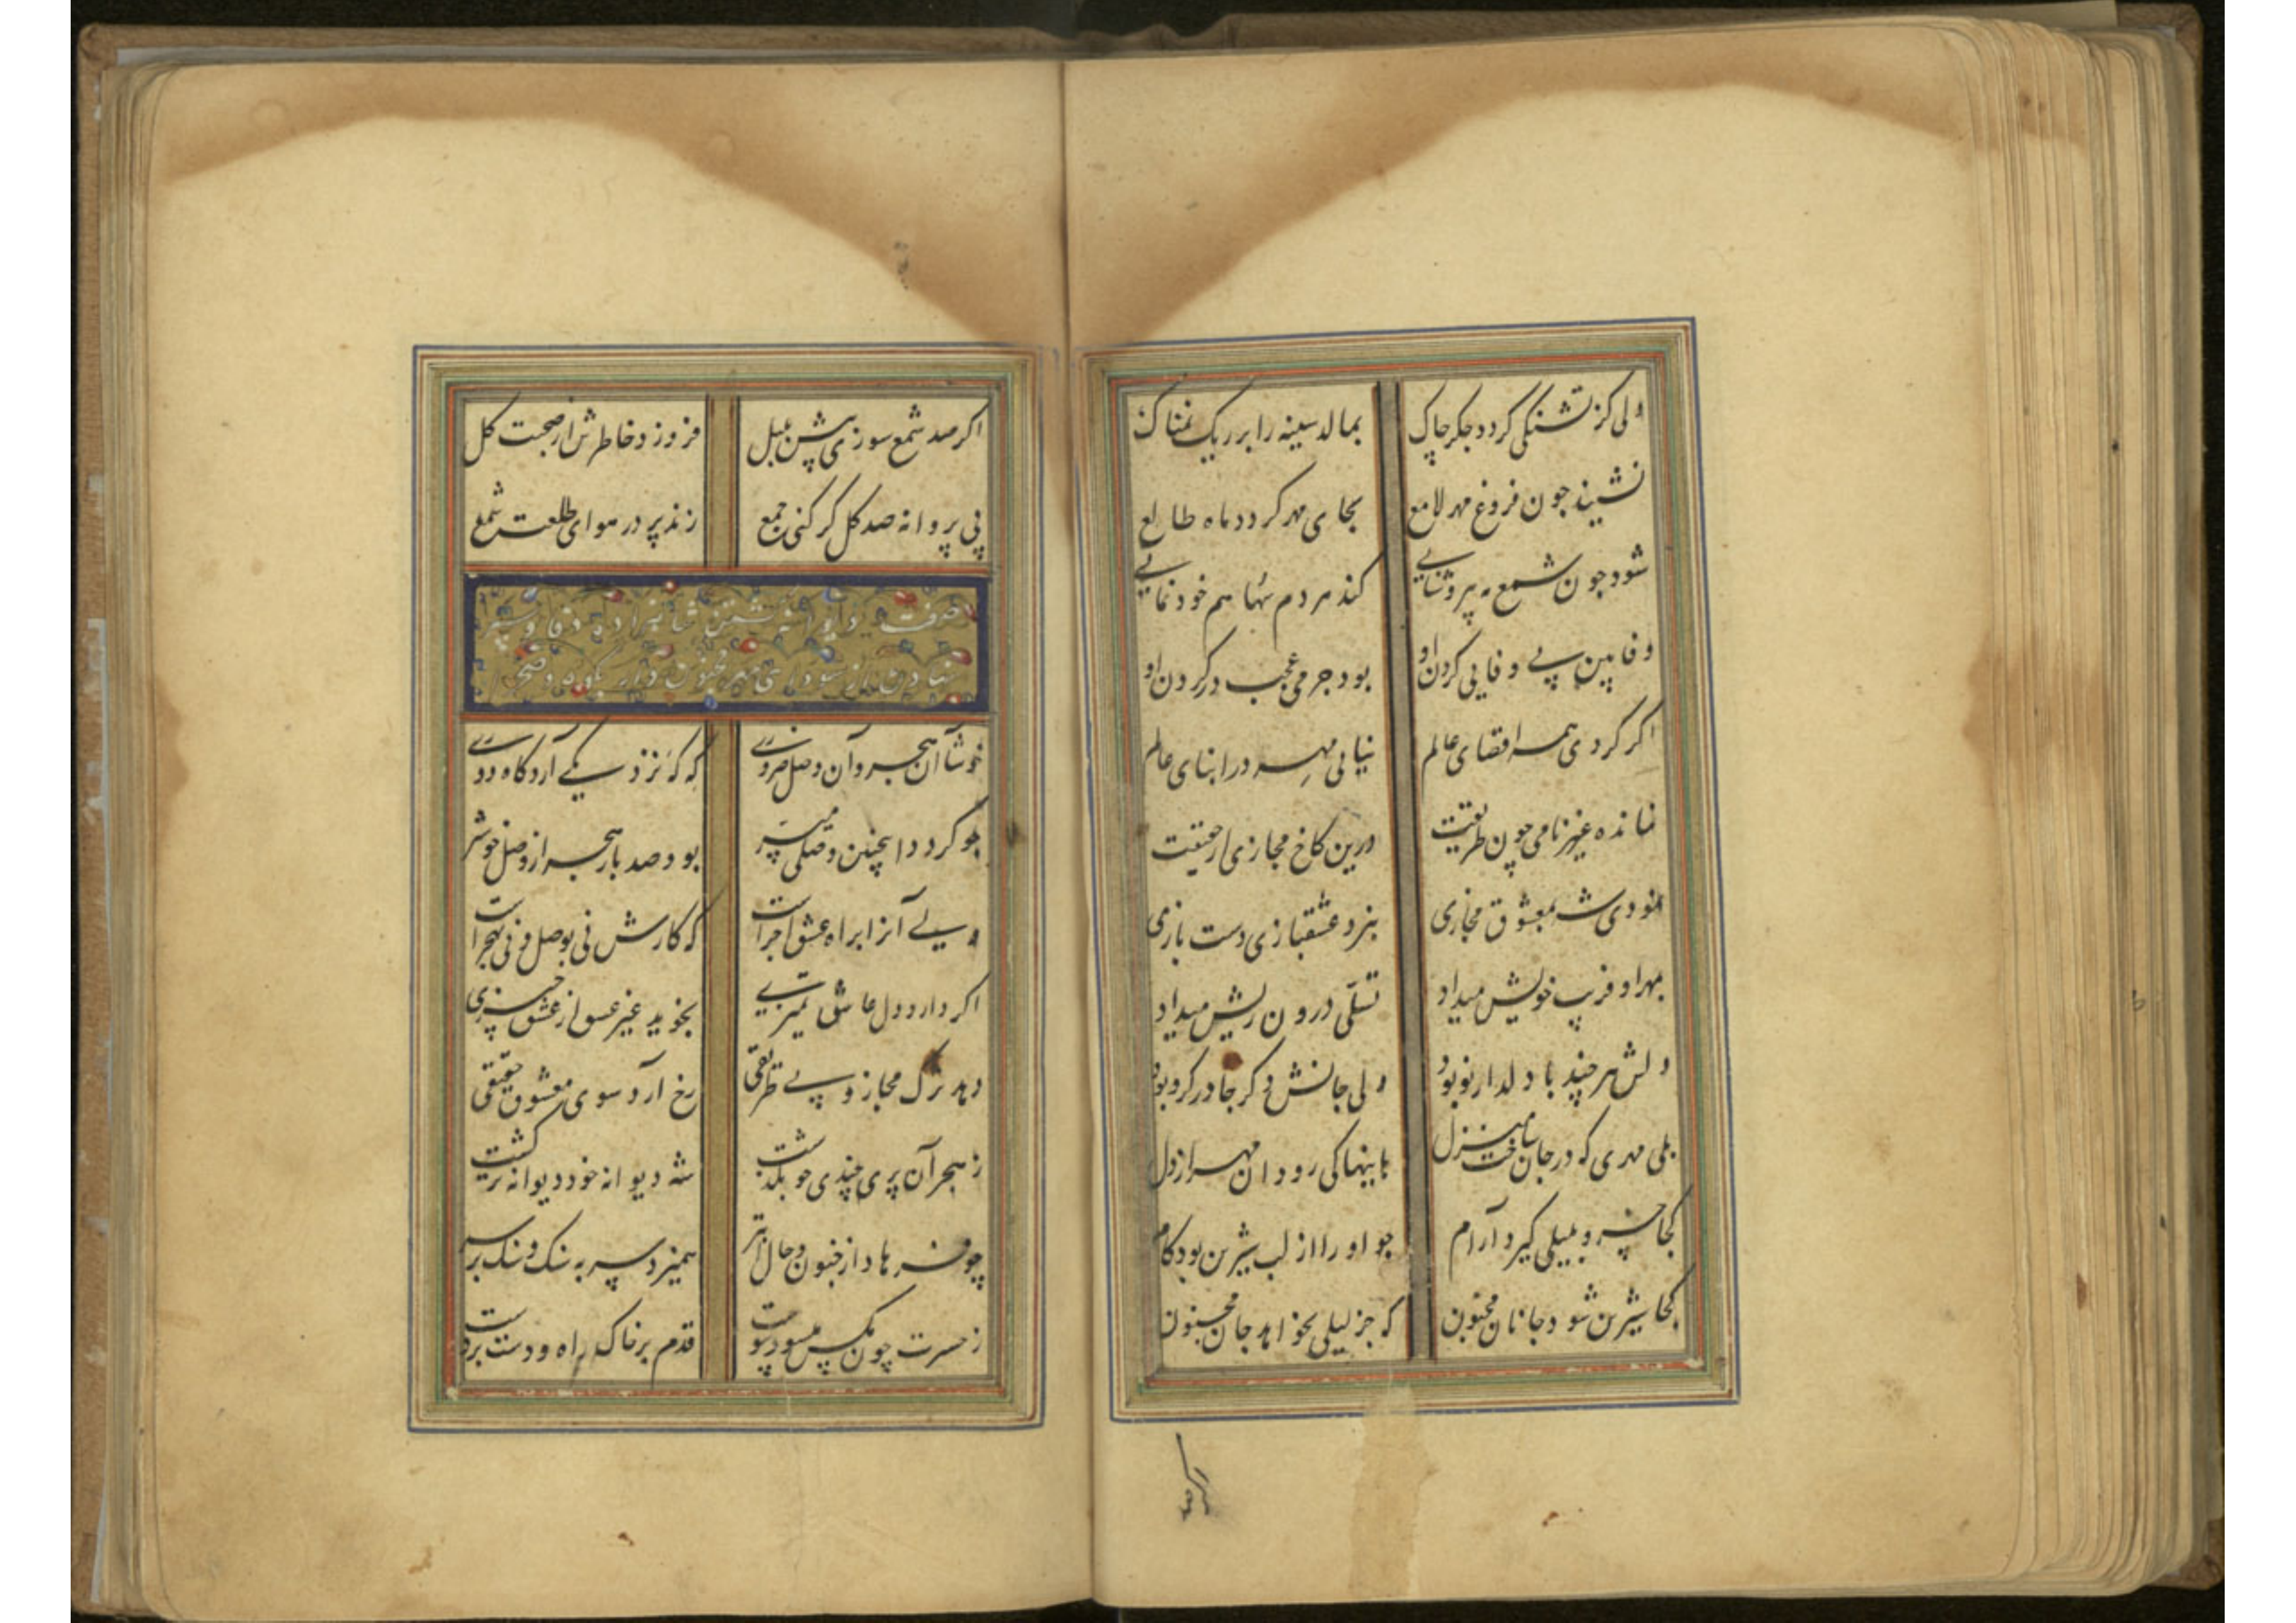 ولی کز تشنگی گردد جگر چاک بمالد سینه را بر ریک نمناک
نشیند چون فروغ مهر لامع بجای مهر گردد ماه طالع
شود چون شمع مه پر وشنایی کند مردم سها هم خود نمایی
وفا بین بی وفایی کردن او بود جرمی عجب در کردن او
اگر گردی همه اقصای عالم نیابی مهر در ابنای عالم
نمانده غیر نامی چون طریقت درین کاخ مجازی از حقیقت
نمودی شه بمعشوق مجازی بنرد عشقبازی دست بازی
بمهر او فریب خویش میداد تسلی درون ریش میداد
دلش هر چند با دلدار نو بود ولی جانش دگر جا در گرو بود
بلی مهری که در جان ساخت منزل باینها کی رود آن مهر از دل
کجا خسرو بمیلی گیرد آرام چو او را از لب شیرین بود کام
کجا شیرین شود جانان مجنون که جز لیلی نخواهد جان مجنون
اکر صد
اکر صد شمع سوزی پیش بلبل فروزد خاطرش از صحبت گل
پی پروانه صد گل گر کنی جمع زند پر در هوای طلعت شمع
خوشا آن هجر و آن وصل ضروری که که نزدیکی آرد گاه دوری
چو گردد اینچنین وصلی میسر بود صد بار هجر از وصل خوشتر
ولی آنرا براه عشق اجراست که کارش نی بوصل و نی بهجراست
اگر دارد دل عاشق تمیزی نجوید غیر عشق از عشق چیزی
دهد ترک مجاز و بی طریقی رخ آرد سوی معشوق حقیقی
ز هجر آن پری چندی چو بگذشت شه دیوانه خود دیوانه تر گشت
چو فرهاد از جنون و حال ابتر همیزد سر به سنگ و سنگ بر سر
ز حسرت چون مگس میسود پیوست قدم بر خاک راه و دست بر دست